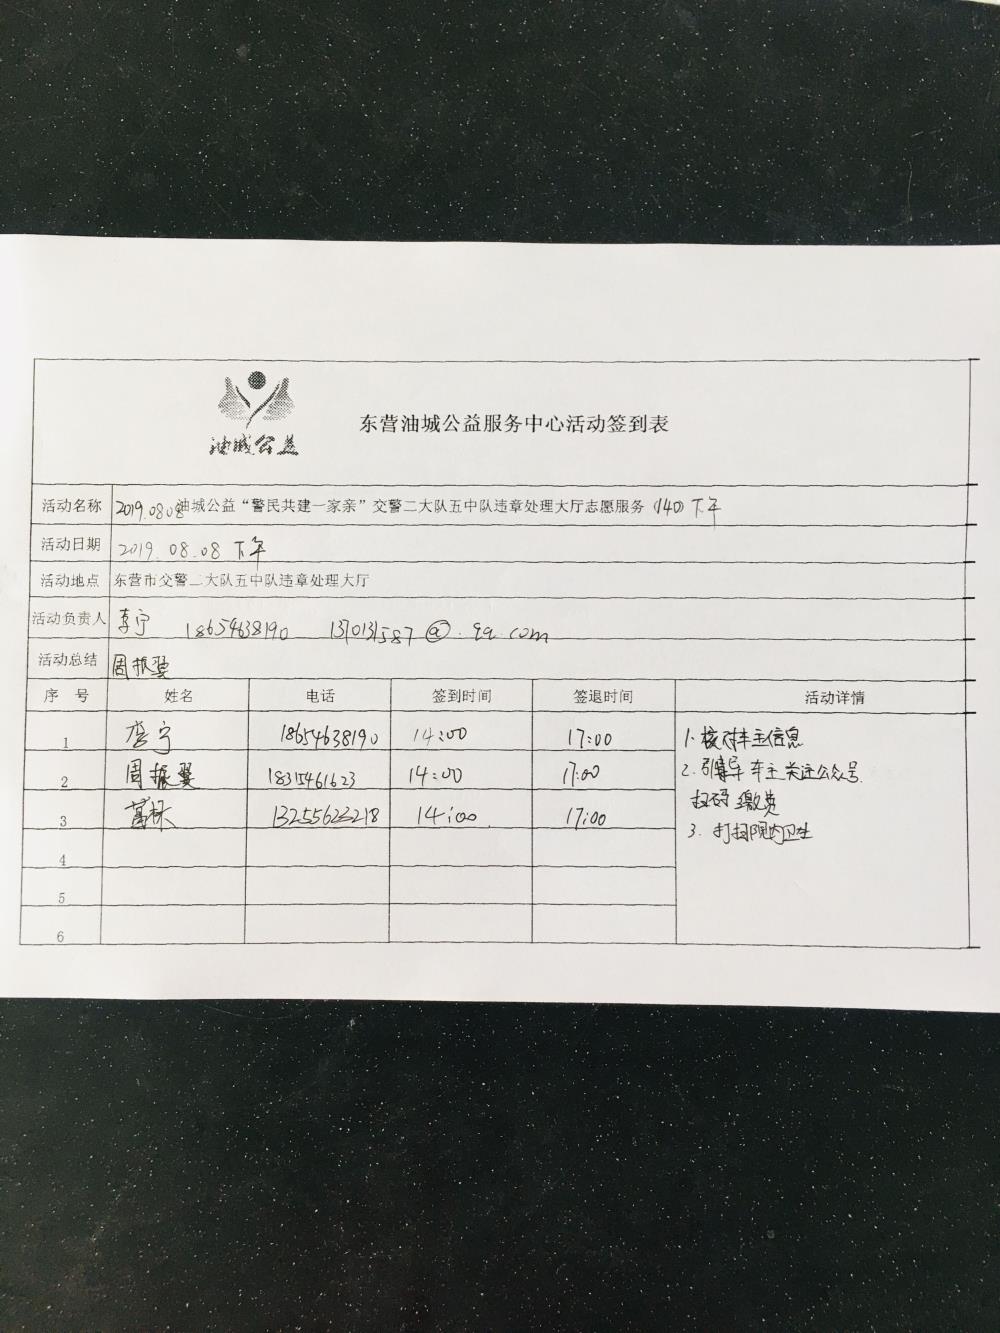 油城公益
东营油城公益服务中心活动签到表
活动名称 2019.0808油城公益“警民共建一家亲”交警二大队五中队违章处理大厅志愿服务 (140) 下午
活动日期 2019.08.08 下午
活动地点 东营市交警二大队五中队违章处理大厅
活动负责人 李宁 18654638190 137013587@.qq.com
活动总结 周振翼
序号 姓名 电话 签到时间 签退时间 活动详情
1 李宁 18654638190 14:00 17:00 1.核对车主信息
2 周振翼 18315461623 14:00 17:00 2.引导车主关注公众号.
扫码缴费
3 葛栋 13255623218 14:00 17:00 3.打扫院内卫生
4
5
6